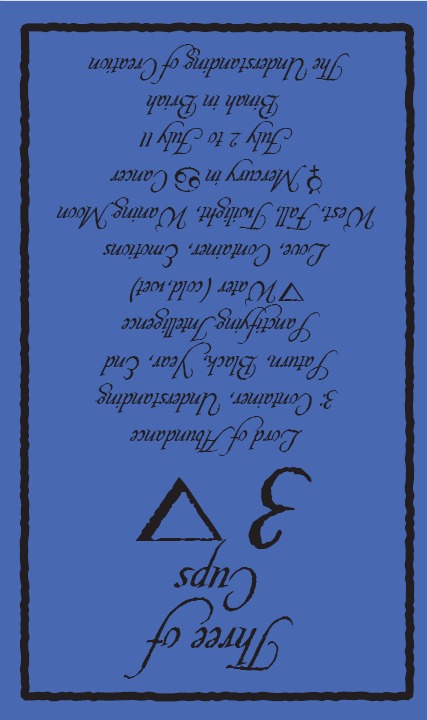 Three of
Cups
3 🜄
Lord of Abundance
3: Container, Understanding
Saturn, Black, Year, End
Sanctifying Intelligence
🜄 Water (cold, wet)
Love, Container, Emotions
West, Fall, Twilight, Waning Moon
☿ Mercury in ♋ Cancer
July 2 to July 11
Binah in Briah
The Understanding of Creation